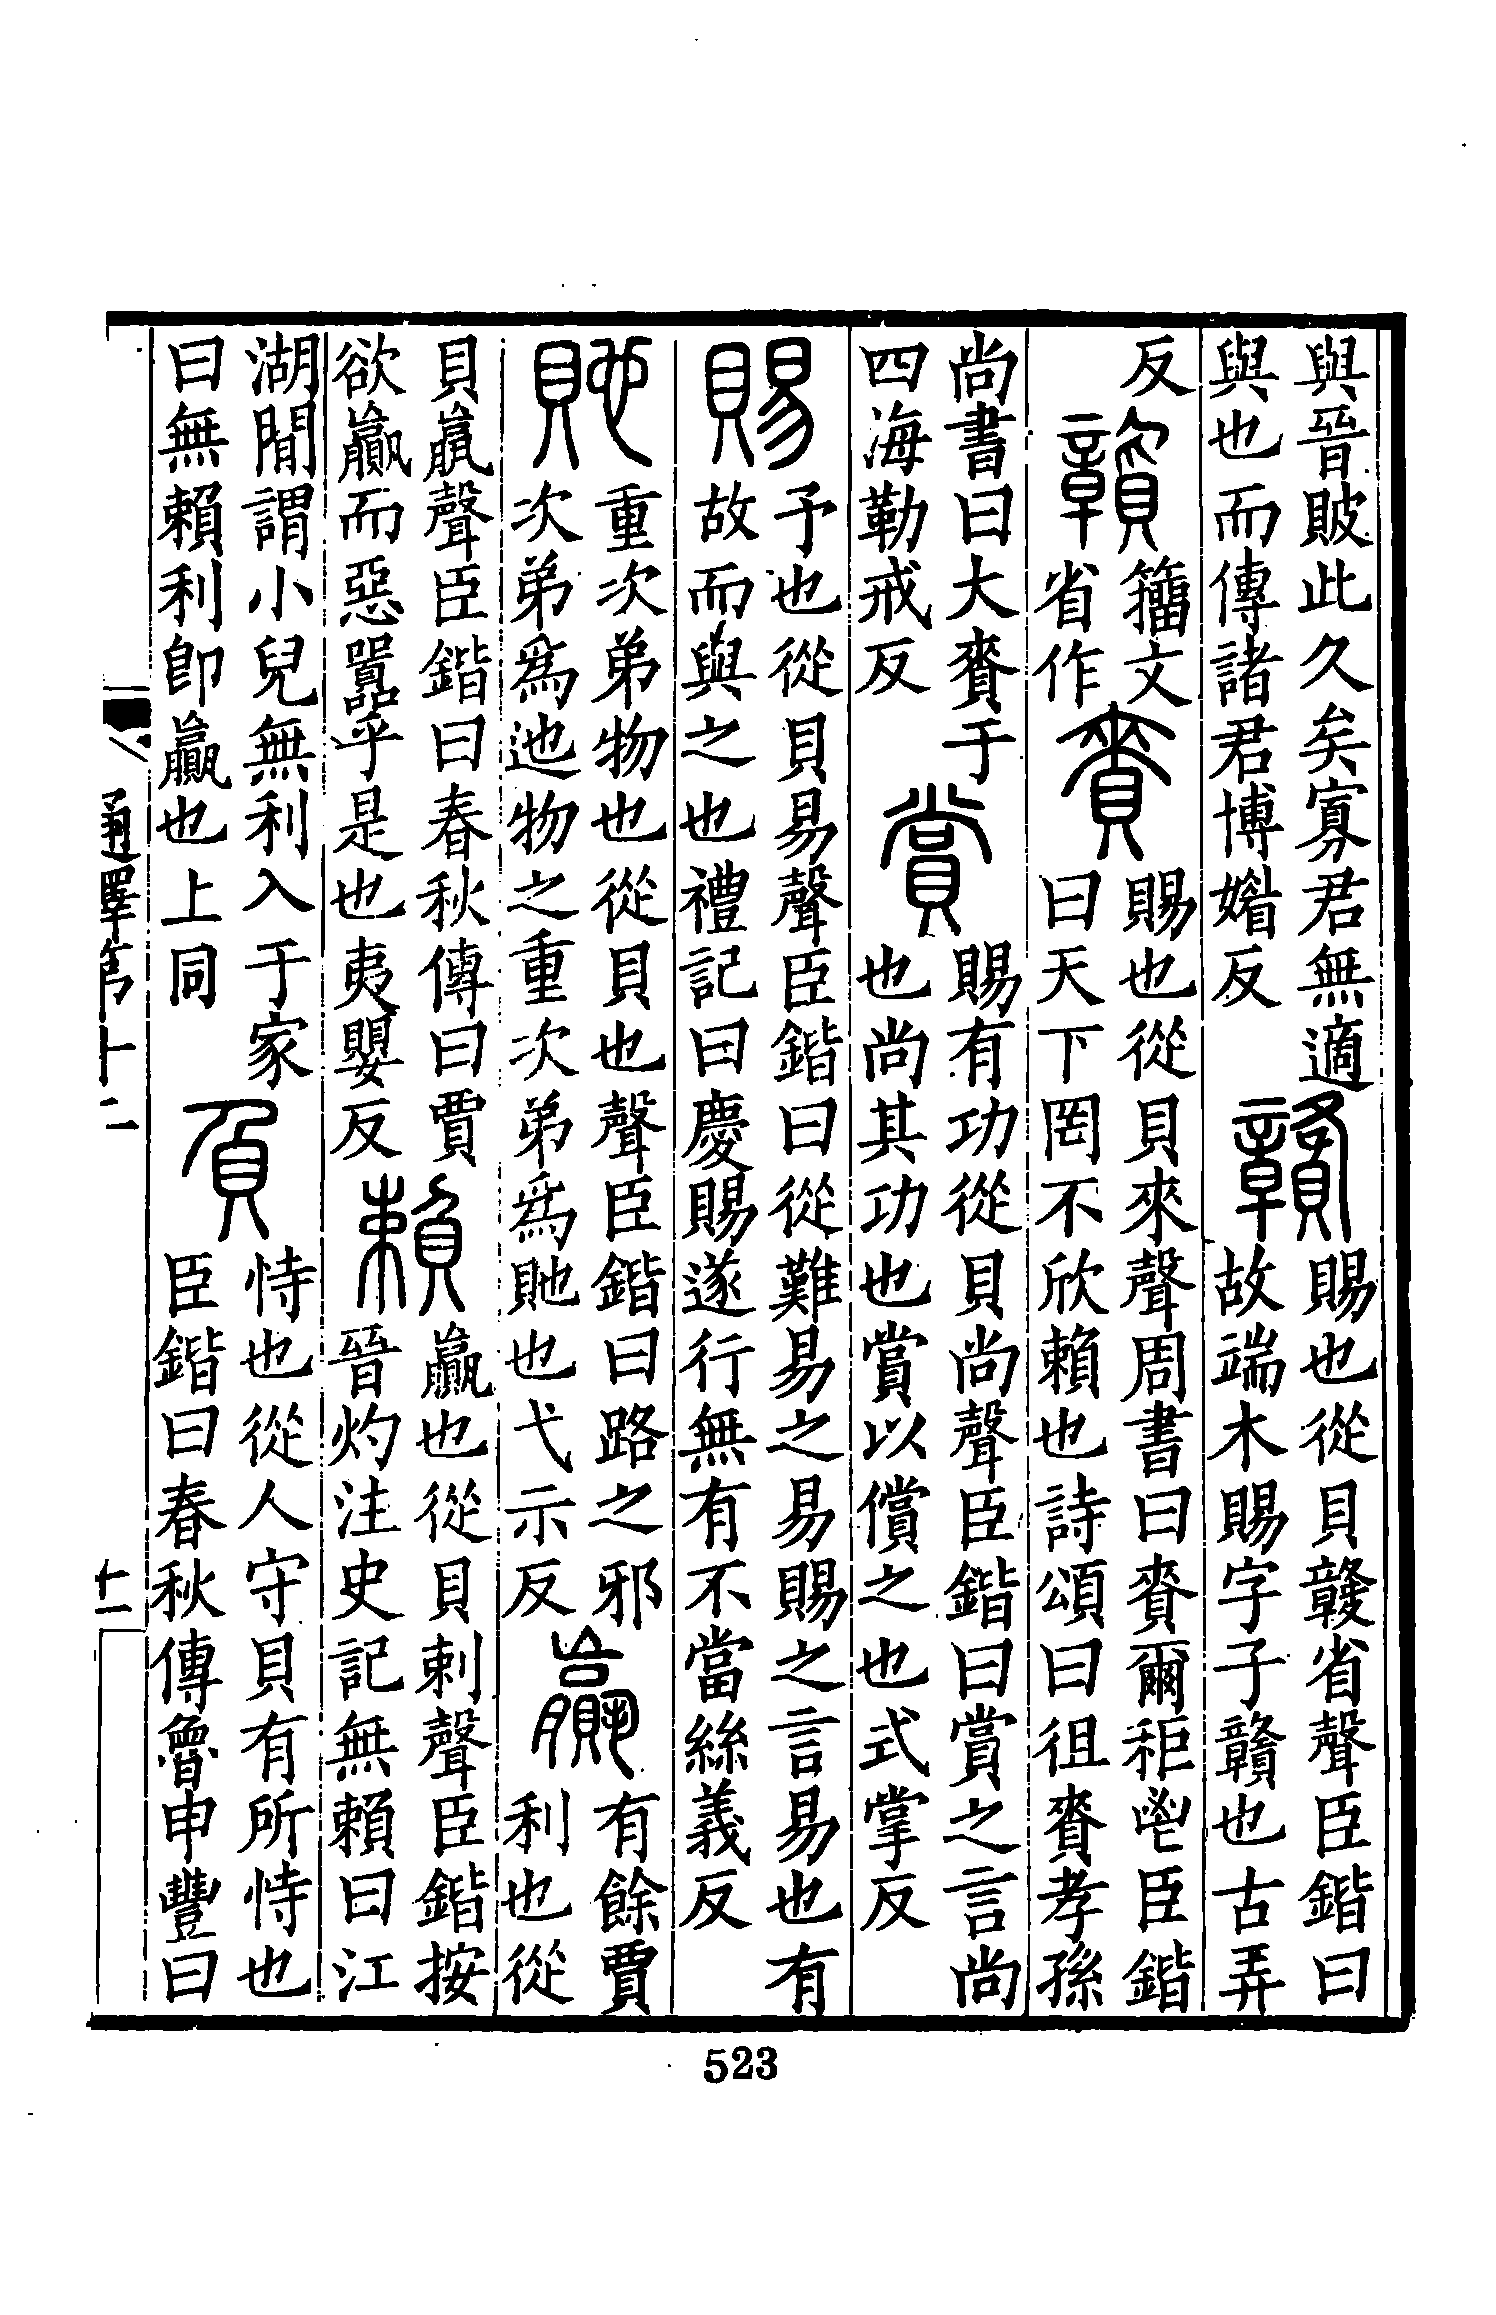 與晉貱此久矣寡君無適與也而傳諸君博媘反贛賜也從貝竷省聲臣鍇曰故端木賜字子贛也古弄
反贛籒文省作賚賜也從貝來聲周書曰賚爾秬鬯臣鍇曰天下罔不欣賴也詩頌曰徂賚孝孫
尚書曰大賚于四海勒戒反賞賜有功從貝尚聲臣鍇曰賞之言尚也尚其功也賞以償之也式掌反
賜予也從貝易聲臣鍇曰從難易之易賜之言易也有故而與之也禮記曰慶賜遂行無有不當絲義反
貤重次弟物也從貝也聲臣鍇曰路之邪次弟爲迆物之重次弟爲貤也弋示反贏有餘賈利也從
貝𦝠聲臣鍇曰春秋傳曰賈欲贏而惡囂乎是也夷嬰反賴贏也從貝剌聲臣鍇按晉灼注史記無賴曰江
湖閒謂小兒無利入于家曰無賴利卽贏也上同負恃也從人守貝有所恃也臣鍇曰春秋傳魯申豐曰
通釋第十二
十一
523